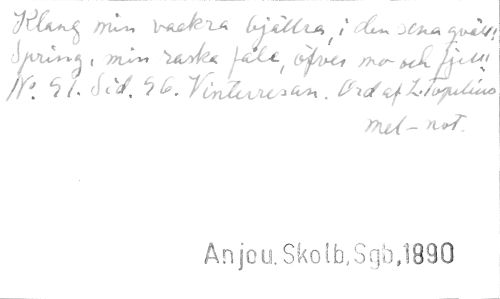 Klang min vackra bjällra, i den sena qväll!
Spring, min raska fåle, öfver mo och fjell!
No. 51. Sid. 56. Vinterresan. Ord af Z. Topelius
mel-not.
Anjou, Skolb, Sgb, 1890